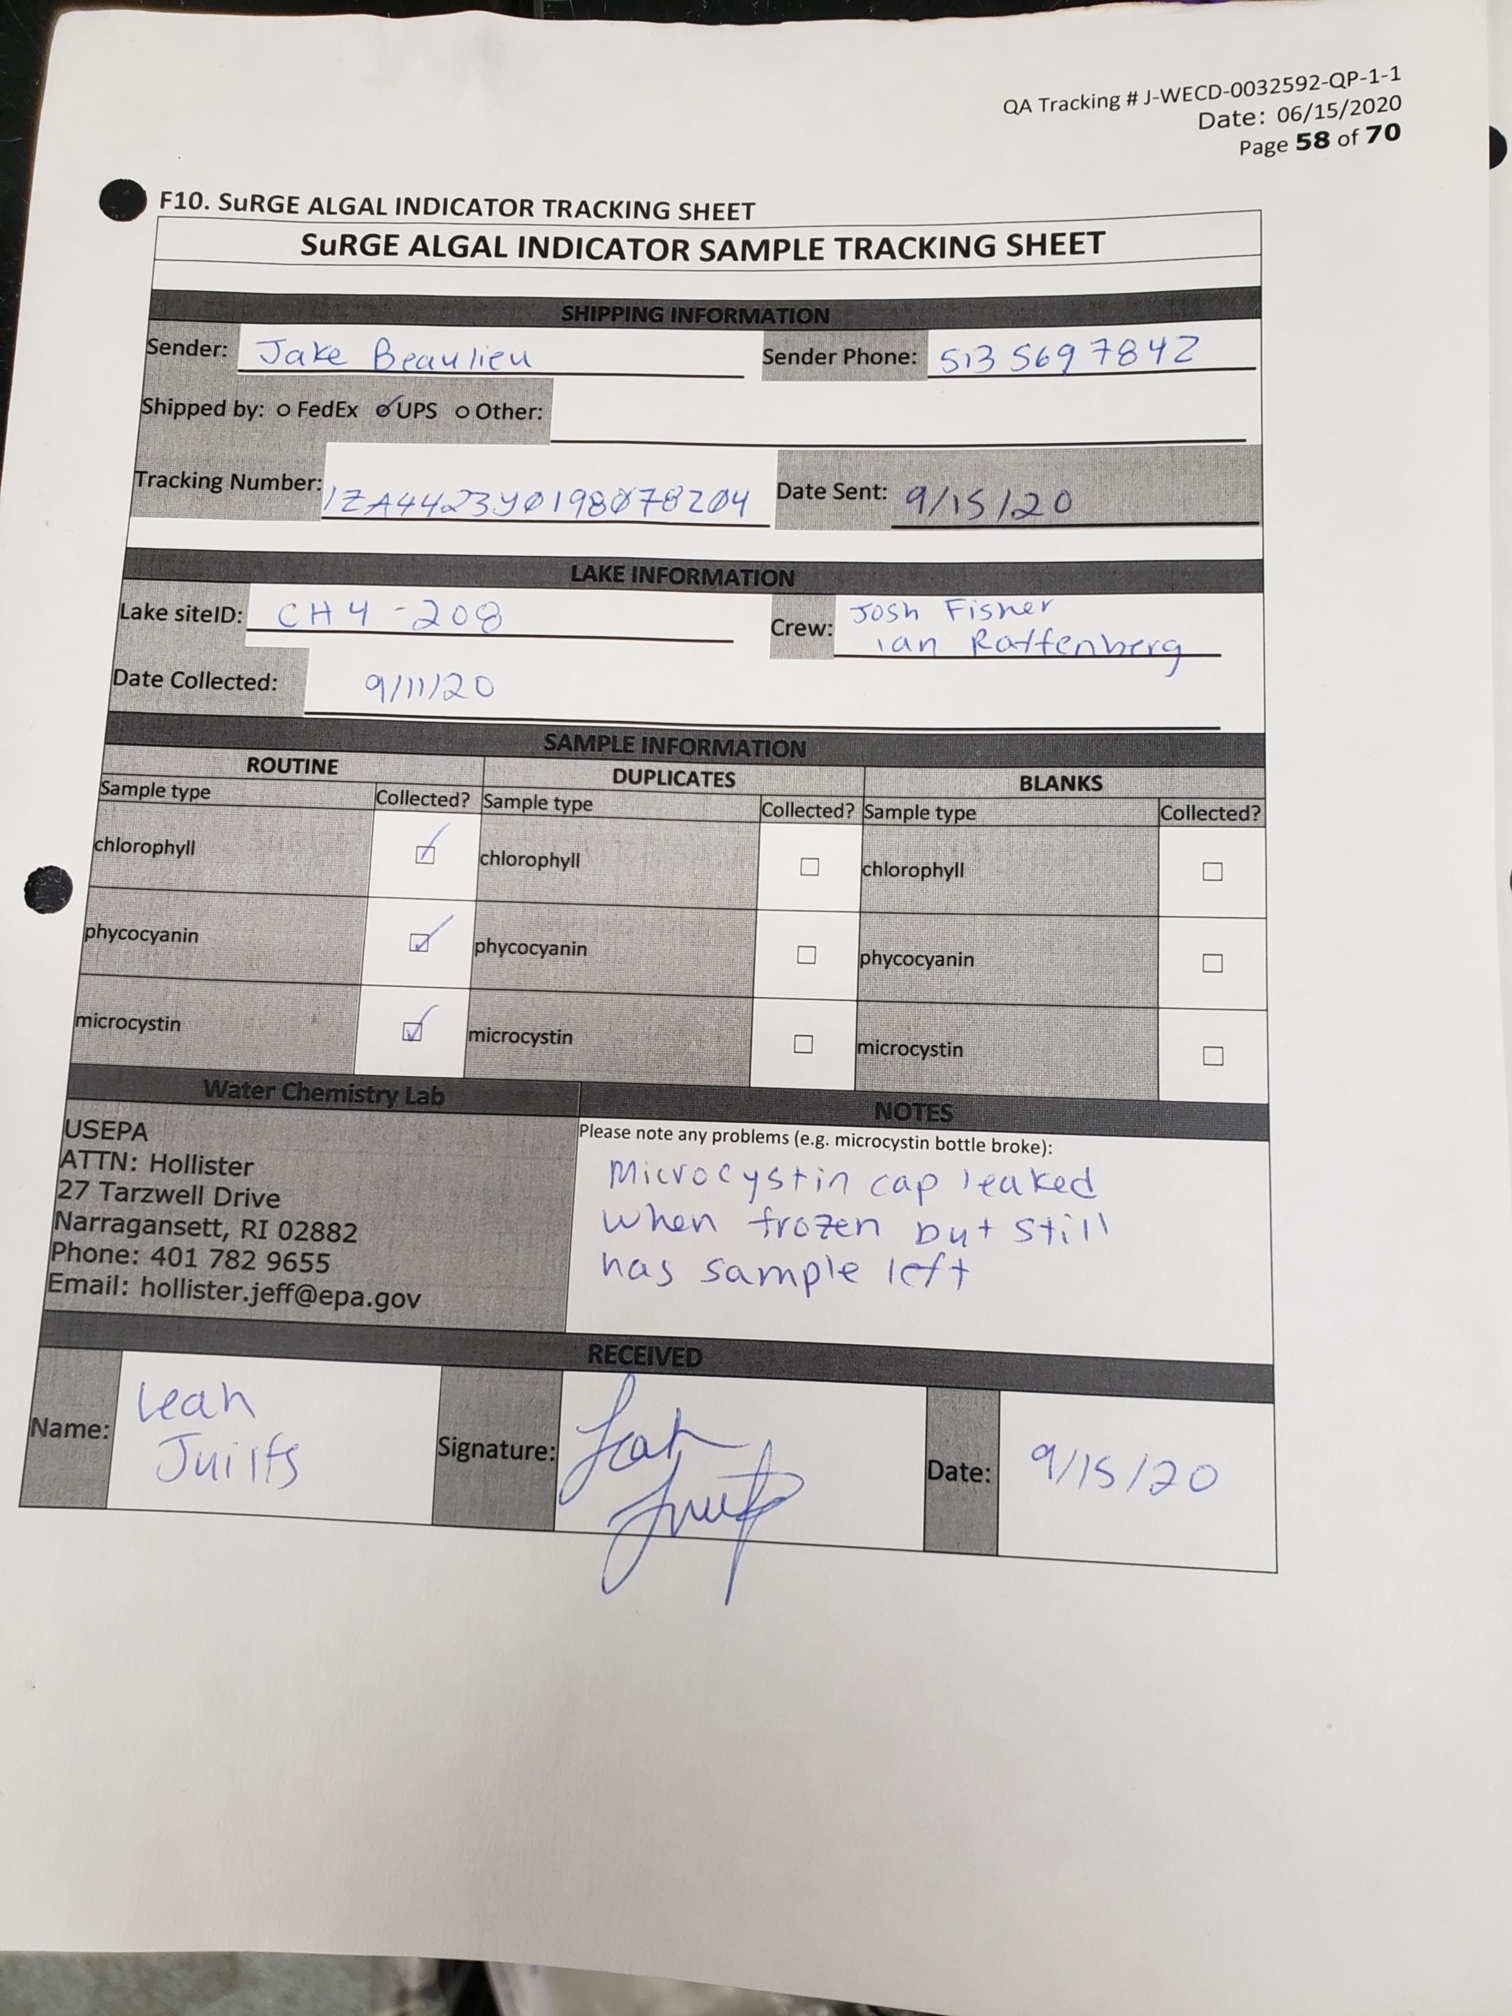 QA Tracking # J-WECD-0032592-QP-1-1
Date: 06/15/2020
Page 58 of 70
F10. SuRGE ALGAL INDICATOR TRACKING SHEET
SuRGE ALGAL INDICATOR SAMPLE TRACKING SHEET
SHIPPING INFORMATION
Sender: Jake Beaulieu Sender Phone: 513 569 7842
Shipped by: o FedEx o UPS o Other:
Tracking Number: Date Sent: 9/15/20
LAKE INFORMATION
Lake siteID: CH4-208 Crew: Josh Fisher
Ian
Date Collected: 9/11/20
SAMPLE INFORMATION
ROUTINE DUPLICATES BLANKS
Sample type Collected? Sample type Collected? Sample type Collected?
chlorophyll ☑ chlorophyll ☐ chlorophyll ☐
phycocyanin ☑ phycocyanin ☐ phycocyanin ☐
microcystin ☑ microcystin ☐ microcystin ☐
Water Chemistry Lab NOTES
USEPA
ATTN: Hollister
27 Tarzwell Drive
Narragansett, RI 02882
Phone: 401 782 9655
Email: hollister.jeff@epa.gov
Please note any problems (e.g. microcystin bottle broke):
Microcystin cap leaked
when frozen but still
has sample left
RECEIVED
Name: Leah Signature: Date: 9/15/20